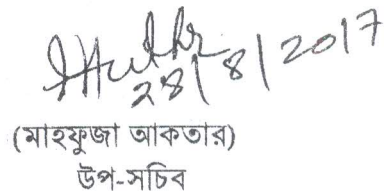 28/8/2017
(মাহফুজা আকতার)
উপ-সচিব